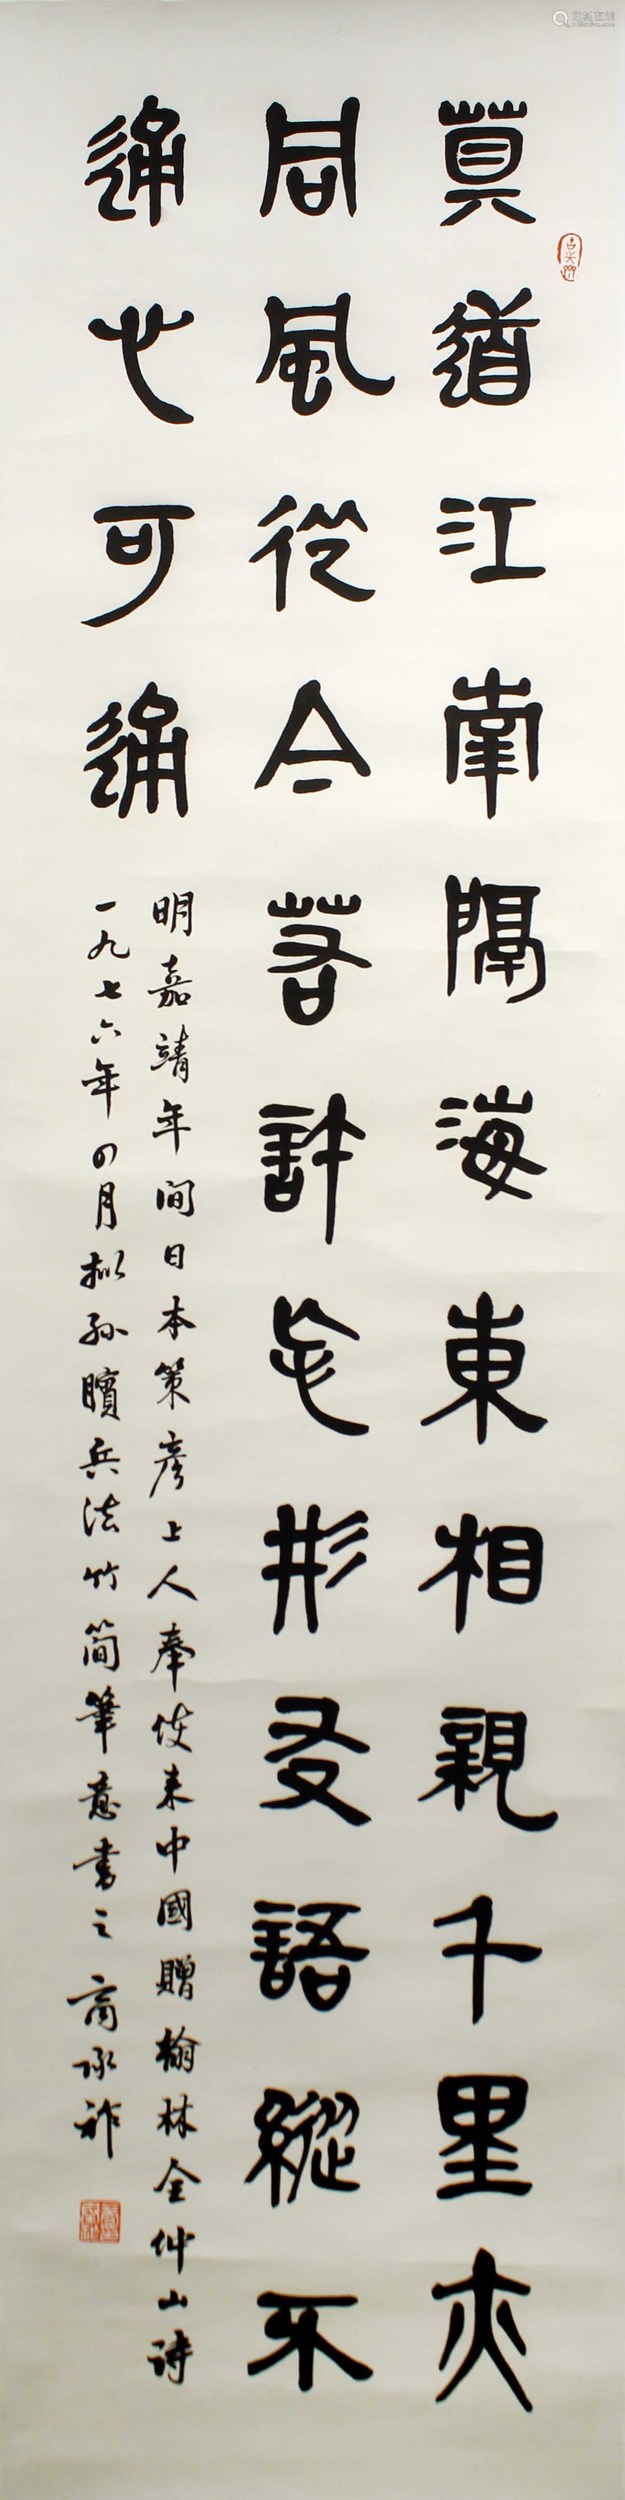 莫道江南隔海東相親千里亦
同風從今若許忘形友語縱不
通心可通
明嘉靖年间日本策彦上人奉使来中國贈翰林全仲山诗
一九七六年四月拟孙臏兵法竹简筆意書之 商承祚